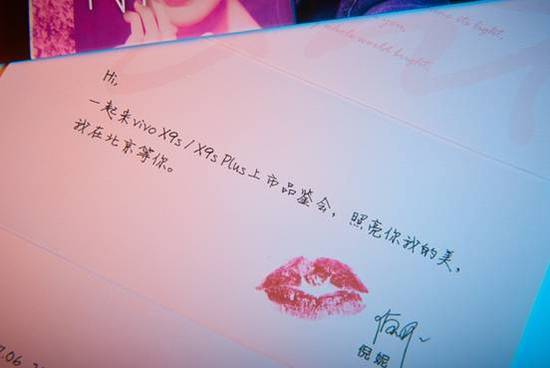 its light,
you,
whole world bright.
Hi,
一起来vivo X9s/X9s Plus上市品鉴会，照亮你我的美，
我在北京等你。
倪妮
7.06